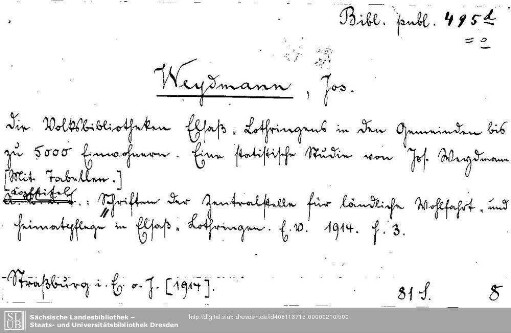 Bibl. publ. 495d
Weydmann, Jos.
Die Volksbibliotheken Elsaß-Lothringens in den Gemeinden bis
zu 5000 Einwohnern. Eine statistische Studie von Jos. Weydmann
[Mit Tabellen.]
Kopftitel
: Schriften der Zentralstelle für ländliche Wohlfahrt- und
Heimatpflege in Elsaß-Lothringen. E.V. 1914. H. 3.
Straßburg i. E. o. J. [1914].
81 S. 8
Sächsische Landesbibliothek –
Staats- und Universitätsbibliothek Dresden